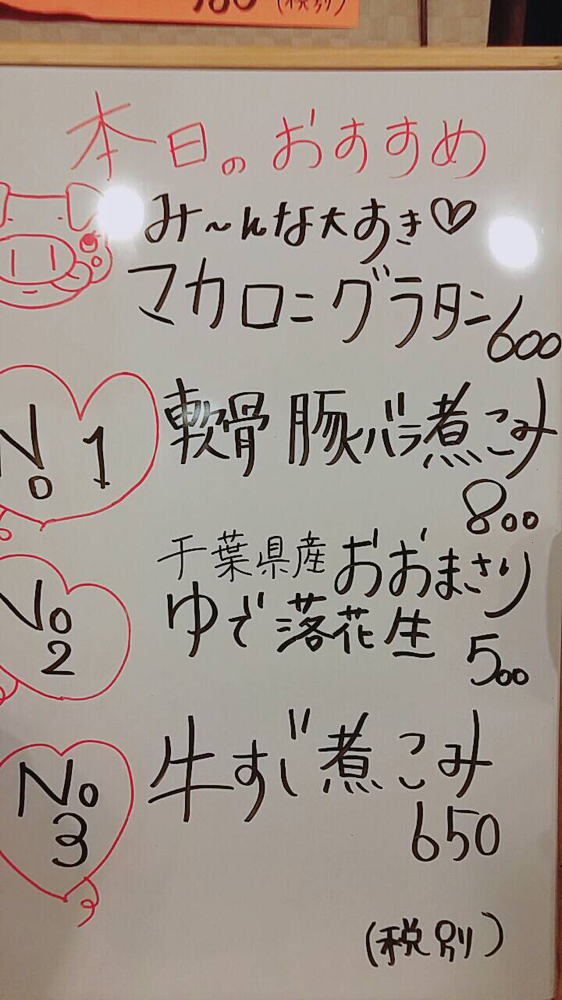 (税別)
本日のおすすめ
み〜んな大すき♡
マカロニグラタン 600
No 1 軟骨 豚バラ煮こみ
800
千葉県産 おおまさり
No 2 ゆで落花生 500
No 3 牛すじ煮こみ
650
(税別)